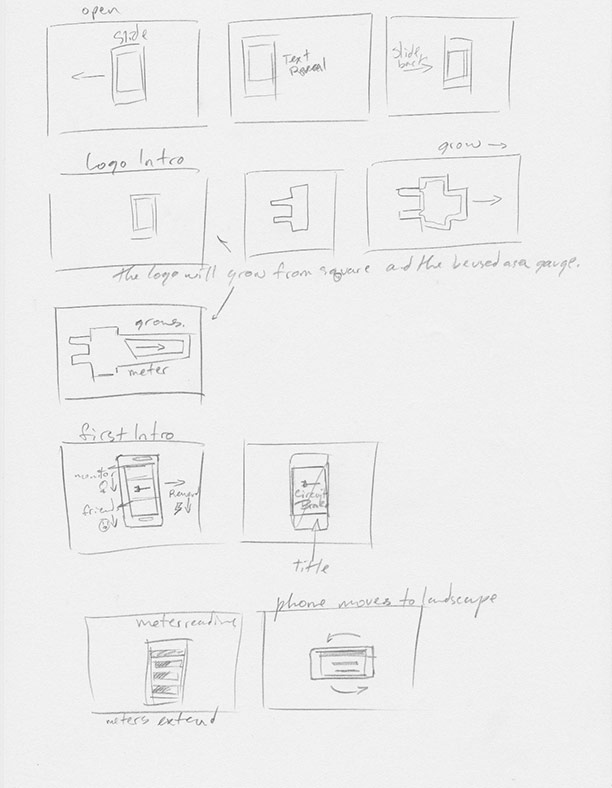 open
Slide
Text
Reveal
Slide
back
Logo Intro
grow
The logo will grow from square and the be used as a gauge.
grows.
meter
first Intro
monitor
friend
Circuit
title
meter reading
phone moves to landscape
meters extend